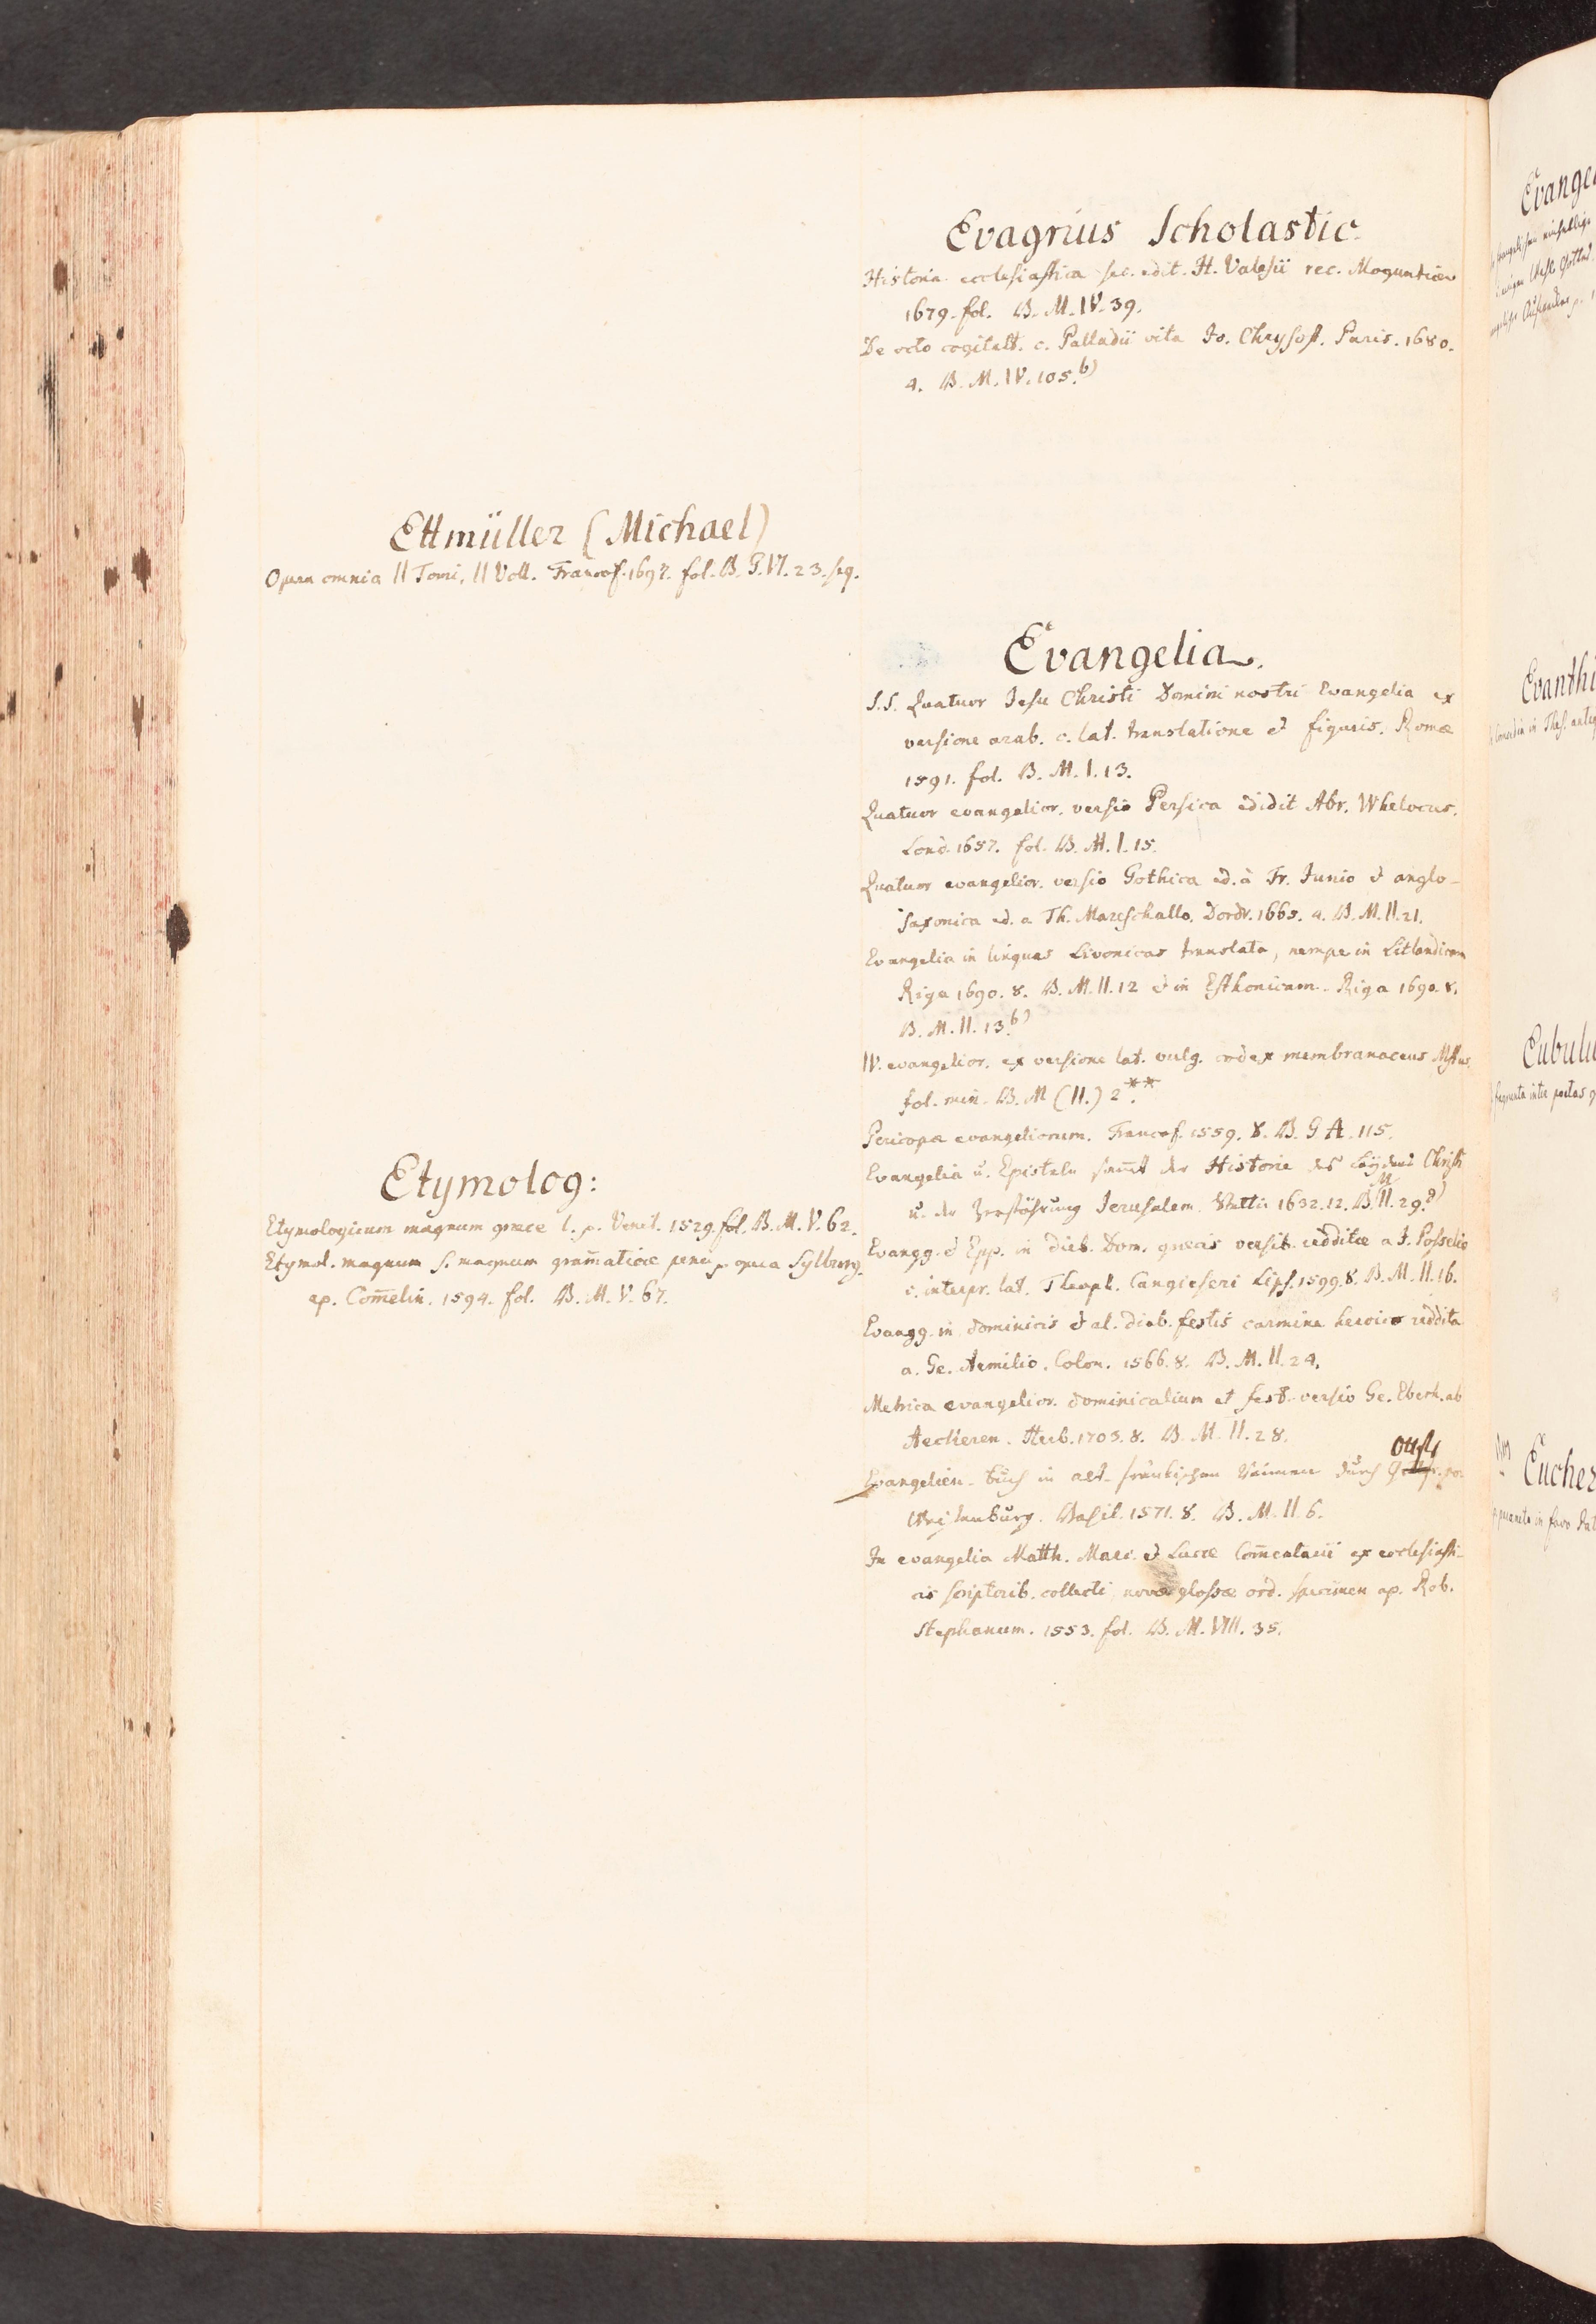 Ettmüller (Michael)
Opera omnia II Tomi, II Voll. Francof. 1697. fol. B. G. VI. 23. seq.
Etymolog:
Etymologicum magnum græce l. p. Venet. 1529. fol. B. M. V. 62.
Etymol. magnum s. magnum gram̄aticæ penu p. opera Sylburg.
ap. Com̄elin. 1594. fol. B. M. V. 67.
Evagrius Scholastic.
Historia ecclesiastica sec. edit. H. Valesii rec. Moguntiæ
1679. fol. B. M. IV. 39.
De octo cogitatt. c. Palladii vita Jo. Chrysost. Paris. 1680.
4. B. M. IV. 105. b)
Evangelia.
S.S. Quatuor Jesu Christi Domini nostri Evangelia ex
versione arab. c. lat. translatione et figuris. Romæ
1591. fol. B. M. I. 13.
Quatuor evangelior. versio Persica edidit Abr. Whelocus.
Lond. 1657. fol. B. M. I. 15.
Quatuor evangelior. versio Gothica ed. à Fr. Junio et anglo-
saxonica ed. a Th. Mareschallo. Dordr. 1665. 4. B. M. II. 21.
Evangelia in linguas Livonicas translata, nempe in Litlandicam
Riga 1690. 8. B. M. II. 12 et in Esthonicam. Riga 1690. 8.
B. M. II. 13. b)
IV. evangelior. ex versione lat. vulg. codex membranaceus Mstus.
fol. min. B. M (II.) 2. **
Pericopæ evangeliorum. Francof. 1559. 8. B. G A. 115.
Evangelia u. Episteln sam̄t der Historie des Leydens Christi
u. der Zerstöhrung Jerusalem. Stettin 1632. 12. B. M II. 29. d)
Evangg. et Epp. in dieb. Dom. græcis versib. redditæ a J. Posselio
c. interpr. lat. Theoph. Cangieseri Lips. 1599. 8. B. M. II. 16.
Evangg. in dominicis et al. dieb. festis carmine heroico reddita
a. Ge. Aemilio. Colon. 1566. 8. B. M. II. 24.
Metrica evangelior. dominicalium et fest. versio Ge. Eberh. ab
Aeckeren. Herb. 1703. 8. B. M. II. 28.
Evangelien-buch in alt-fränkischen Reimen durch Otfr. von
Weissenburg. Basil. 1571. 8. B. M. II. 6.
In evangelia Matth. Marc. et Lucæ Com̄entarii ex ecclesiasti-
cis scriptorib. collecti novæ glossæ ord. specimen ap. Rob.
Stephanum. 1553. fol. B. M. VIII. 35.